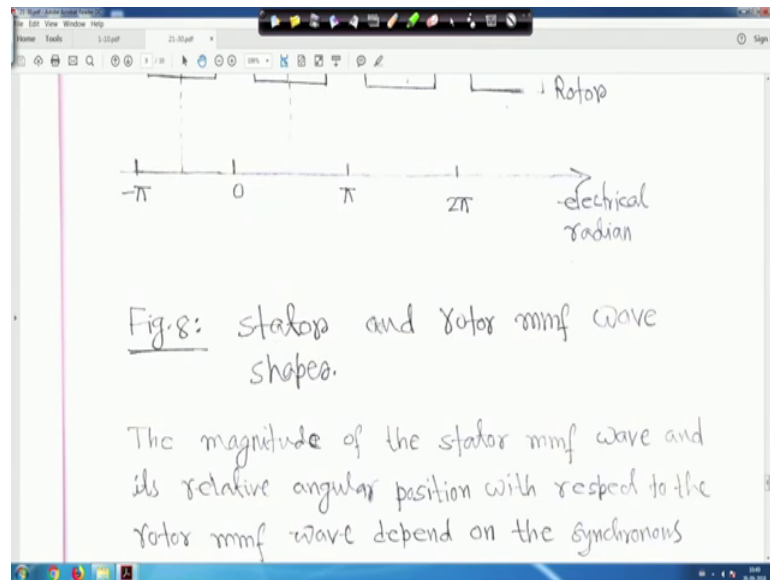 21-30.pdf - Adobe Acrobat Reader DC
File Edit View Window Help
Home Tools 1-10.pdf 21-30.pdf × Sign
Rotor
-π 0 π 2π electrical
radian
Fig.8: stator and rotor mmf wave
shapes.
The magnitude of the stator mmf wave and
its relative angular position with respect to the
rotor mmf wave depend on the synchronous